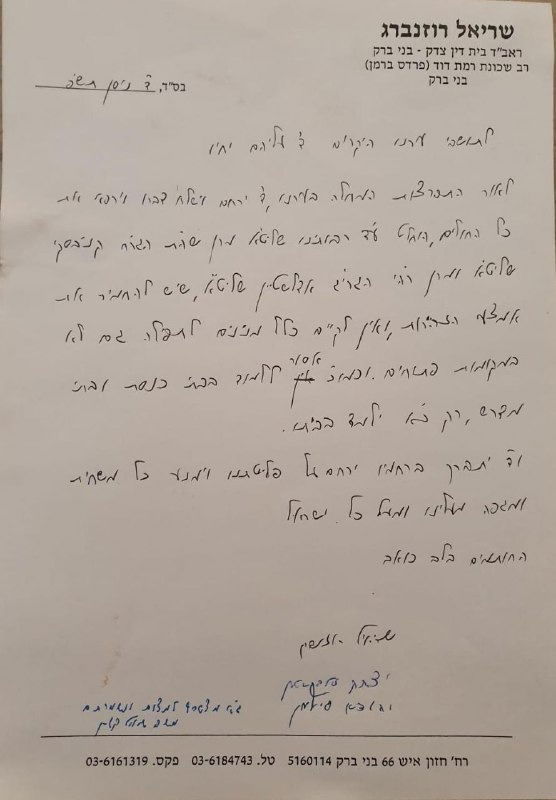 שריאל רוזנברג
ראב"ד בית דין צדק - בני ברק
רב שכונת רמת דוד (פרדס ברמן)
בני ברק
בס"ד, ד' ניסן תש"פ
לתושבי עירנו היקרים ד' עליהם יחיו
לאור התפרצות המחלה בעירנו, ד' ירחם וישלח דברו וירפא את
כל החולים, הוחלט ע"ד רבותינו שליט"א מרן שה"ת הגר"ח קניבסקי
שליט"א ומרן רה"י הגר"ג אדלשטיין שליט"א, שיש להחמיר את
אמצעי הזהירות, ואין לקיים כלל מנינים לתפלה גם לא
במקומות פתוחים. וכמו"כ אסור ללמוד בבתי כנסת ובתי
מדרש, רק כ"א ילמד בביתו.
וד' יתברך ברחמיו ירחם על פליטתנו וימנע כל משחית
ומגפה מעלינו ומעל כל ישראל
החותמים בלב כואב
שריאל רוזנברג
יצחק
יהודא סילמן
גם אני מצטרף
רח' חזון איש 66 בני ברק 5160114 טל. 03-6184743 פקס. 03-6161319